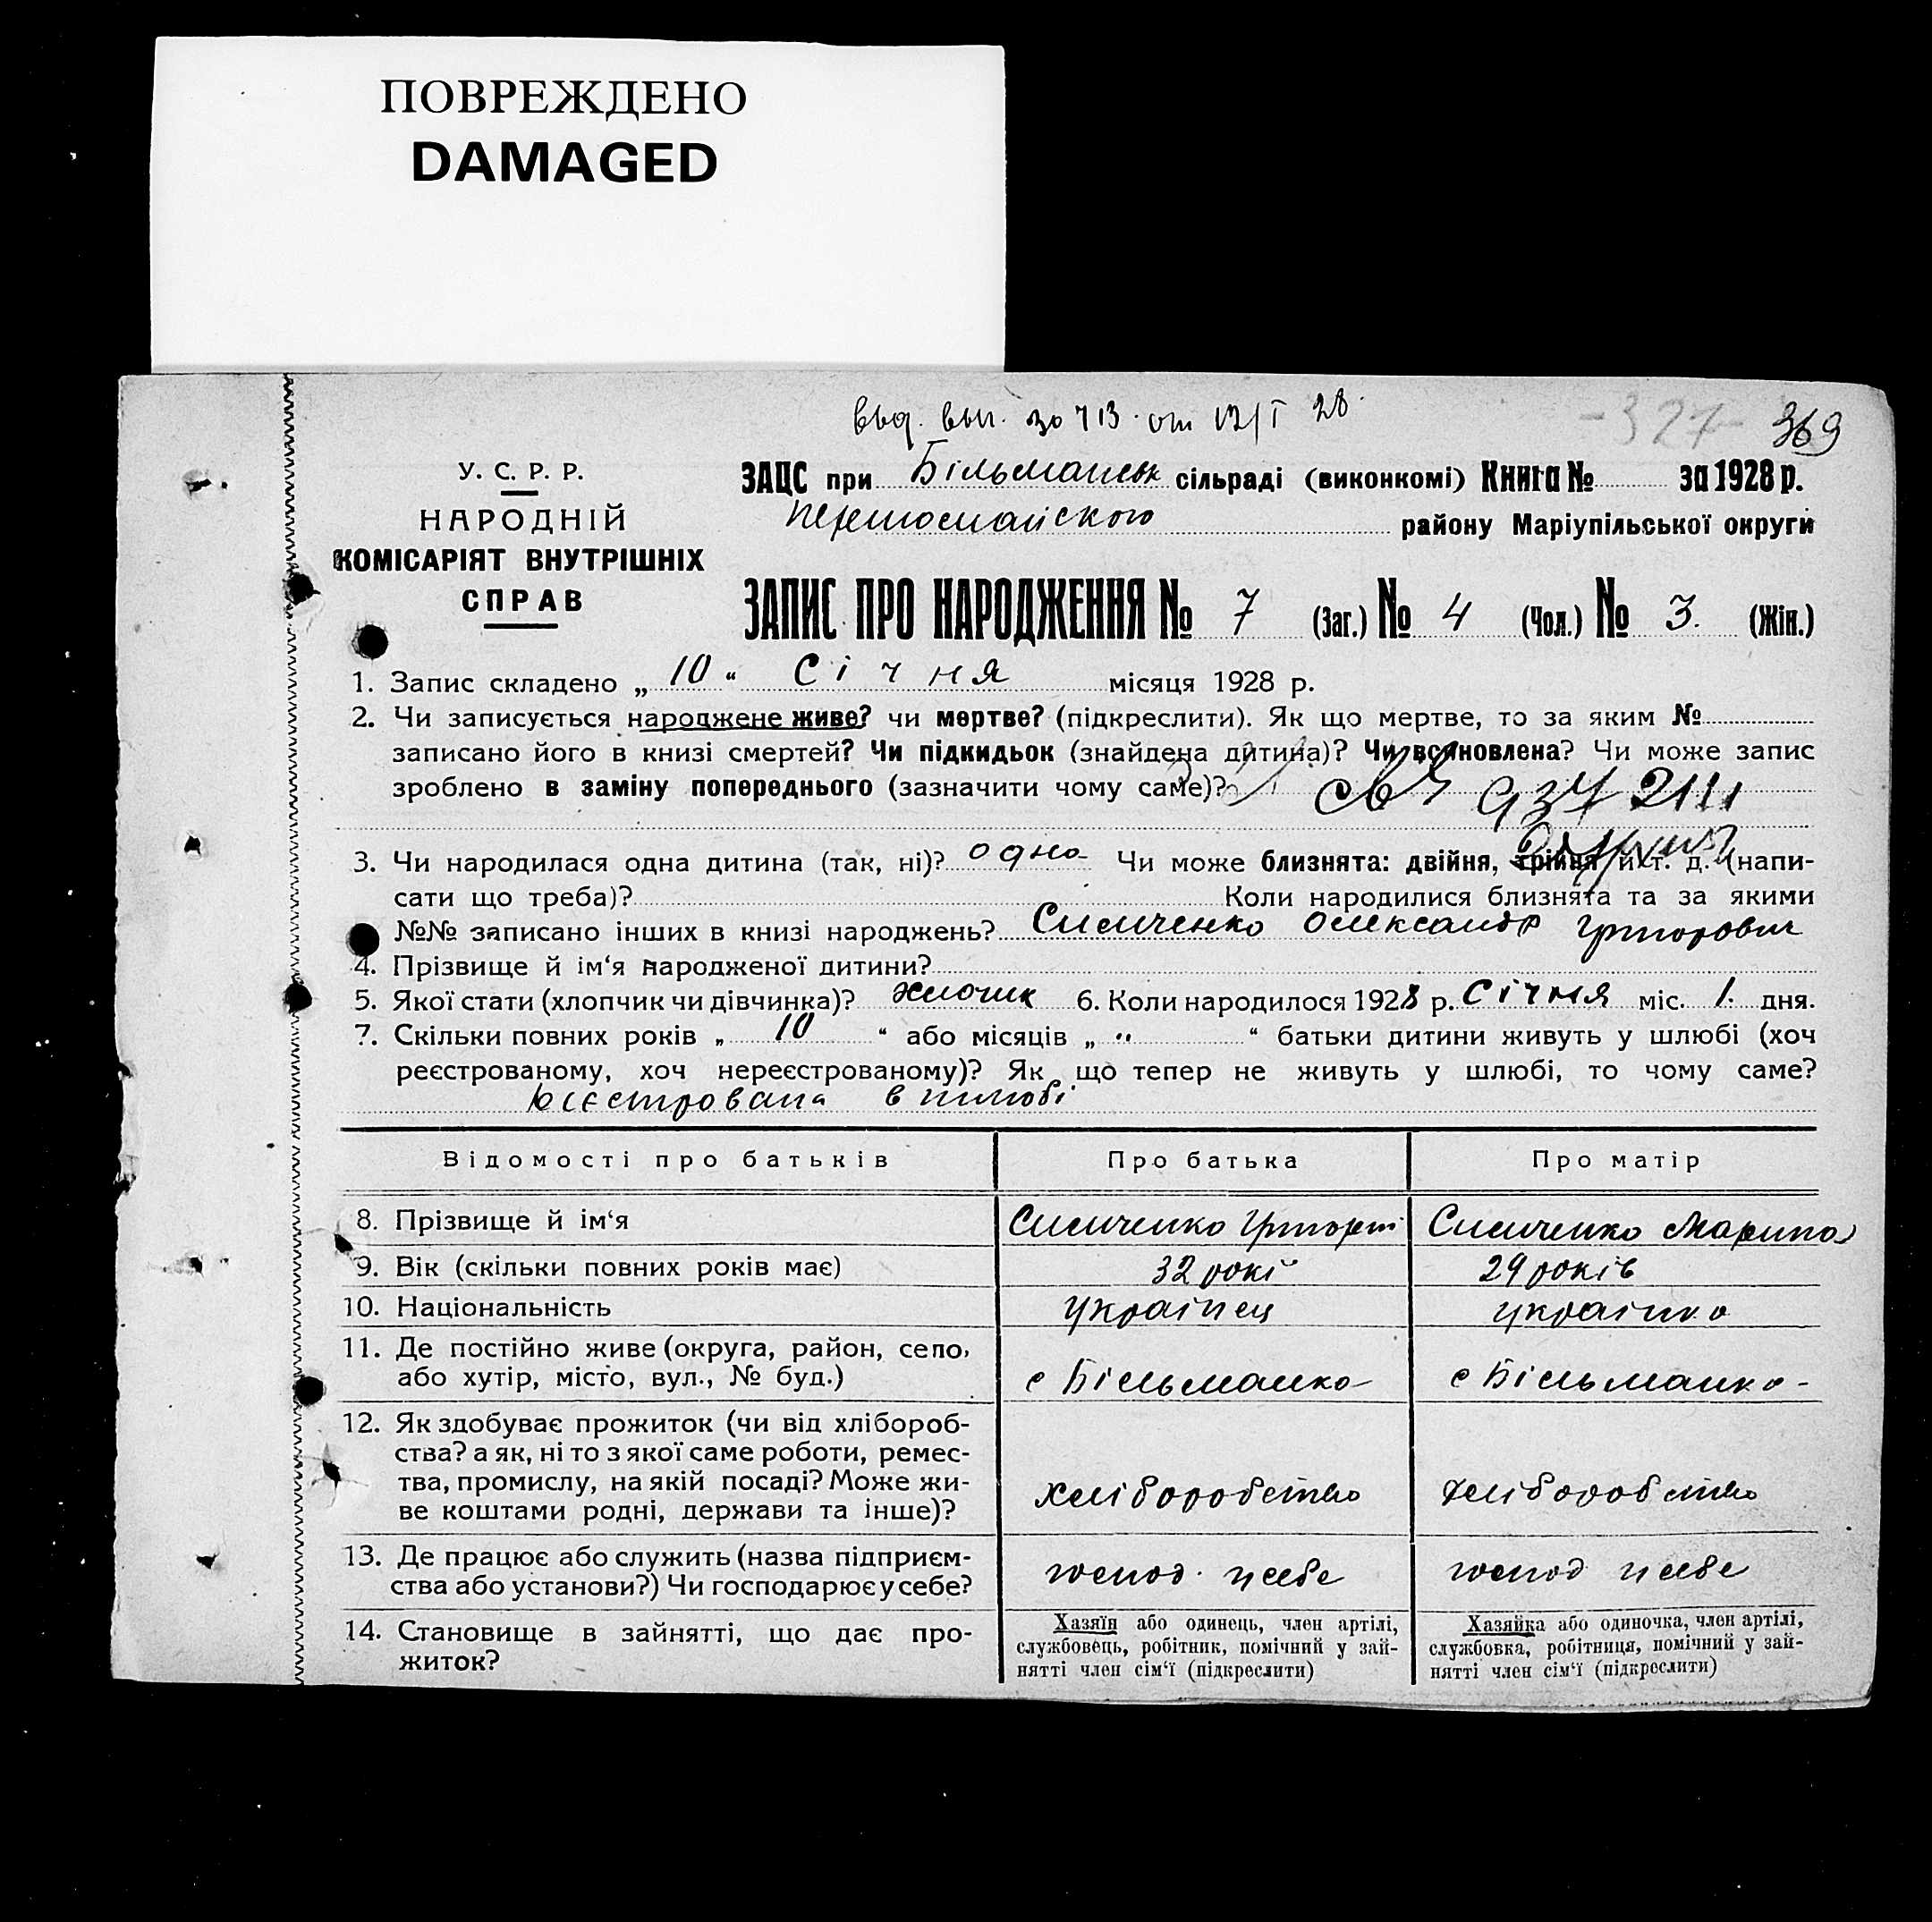 ПОВРЕЖДЕНО
DAMAGED
от 12/I 28
-327- 369
У. С. Р. Р.
НАРОДНІЙ
КОМІСАРІЯТ ВНУТРІШНІХ
СПРАВ
ЗАЦС при Більманськ сільраді (виконкомі) Книга № за 1928 р.
району Маріупільської округи
ЗАПИС ПРО НАРОДЖЕННЯ № 7 (Заг.) № 4 (Чол.) № 3. (Жін.)
1. Запис складено „ 10 “ Січня місяця 1928 р.
2. Чи записується народжене живе? чи мертве? (підкреслити). Як що мертве, то за яким №
записано його в книзі смертей? Чи підкидьок (знайдена дитина)? Чи всиновлена? Чи може запис
зроблено в заміну попереднього (зазначити чому саме)?
3. Чи народилася одна дитина (так, ні)? одно Чи може близнята: двійня, трійня й т. д. (напи-
сати що треба)? Коли народилися близнята та за якими
№№ записано інших в книзі народжень? Олександр Григорович
4. Прізвище й ім‘я народженої дитини?
5. Якої стати (хлопчик чи дівчинка)? хлопчик 6. Коли народилося 1928 р. Січня міс. 1. дня.
7. Скільки повних років „ 10 “ або місяців „ “ батьки дитини живуть у шлюбі (хоч
реєстрованому, хоч нереєстрованому)? Як що тепер не живуть у шлюбі, то чому саме?
в шлюбі
Відомості про батьків Про батька Про матір
8. Прізвище й ім‘я Григорій Марина
9. Вік (скільки повних років має) 32 рокі 29 років
10. Національність Українец українка
11. Де постійно живе (округа, район, село,
або хутір, місто, вул., № буд.) с Більманка с Більманка
12. Як здобуває прожиток (чи від хлібороб-
ства? а як, ні то з якої саме роботи, ремес-
тва, промислу, на якій посаді? Може жи-
ве коштами родні, держави та інше)? хліборобство хліборобство
13. Де працює або служить (назва підприєм-
ства або установи?) Чи господарює у себе? господ. у себе господ у себе
14. Становище в зайнятті, що дає про-
житок?
Хазяїн або одинець, член артілі,
службовець, робітник, помічний у зай-
нятті член сім‘ї (підкреслити)
Хазяйка або одиночка, член артілі,
службовка, робітниця, помічний у зай-
нятті член сім‘ї (підкреслити)